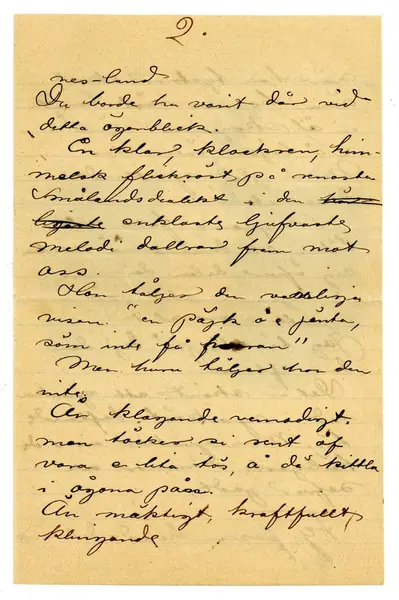 2.
nes-land
Du borde ha varit där vid
detta ögonblick.
En klar, klockren, him-
melsk flickröst på renaste
Smålandsdialekt i den
enklaste ljufvaste
melodi dallrar fram mot
oss.
Hon tälger den
visan. "en påjk å e jänta,
som inte få "
Men huru tälger hon den
inte.
Än klagande vemodigt,
man töcker si sent åf
vara e lita tös, å då kittla
i ögona påss.
Än mäktigt, kraftfullt,
klingande